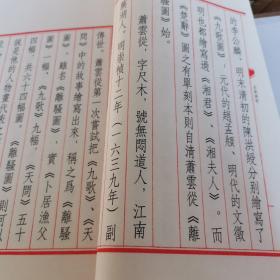 的李公麟、明末清初的陳洪綬分別繪寫了
《九歌圖》,元代的趙孟頫、明代的文徵
明也都繪寫過《湘君》、《湘夫人》。而
《楚辭》圖之有單刻本則自清蕭雲從《離
騷圖》始。
蕭雲從,字尺木,號無悶道人,江南
湖人,明崇禎十二年(一六三九年)副
傳世。蕭雲從第一次嘗試把《九歌》、《天
問》中的故事繪寫出來,稱之爲《離騷
圖》,雖名《離騷圖》,實《卜居漁父
四幅,《九歌》九幅,《天問》五十
共六十四幅圖。《離騷圖》則可以